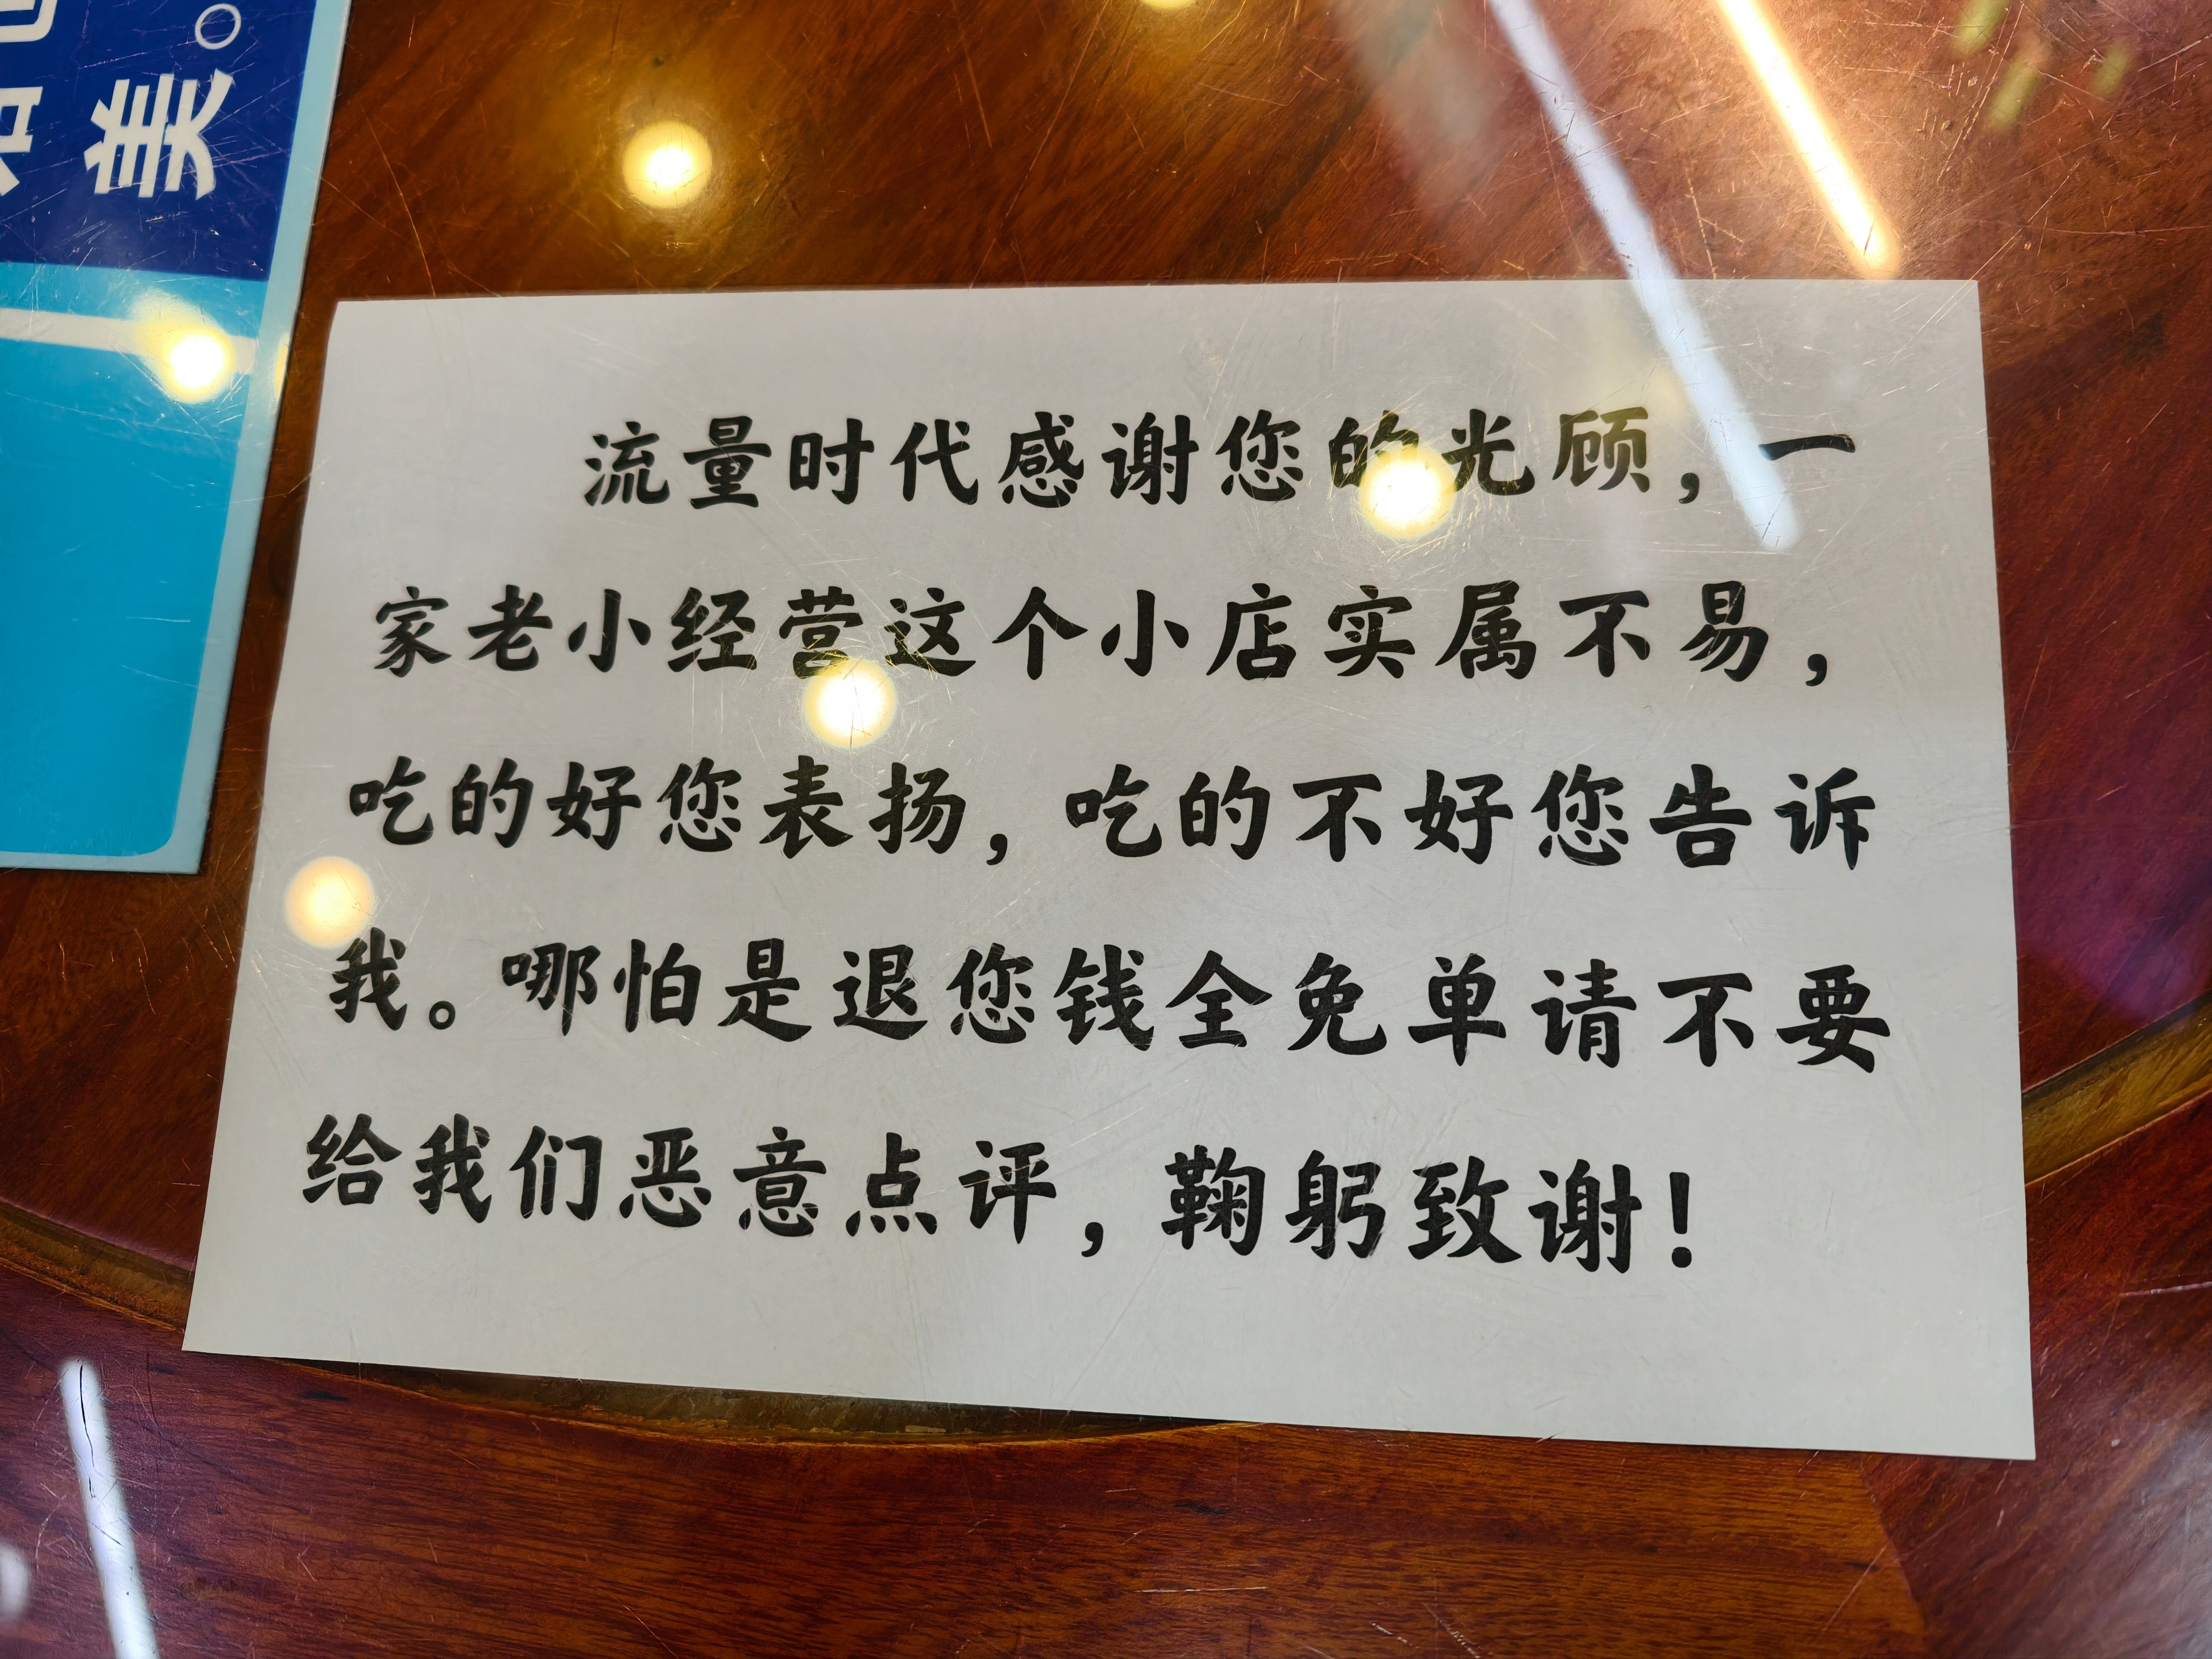 美。
流量时代感谢您的光顾，一
家老小经营这个小店实属不易，
吃的好您表扬，吃的不好您告诉
我。哪怕是退您钱全免单请不要
给我们恶意点评，鞠躬致谢！